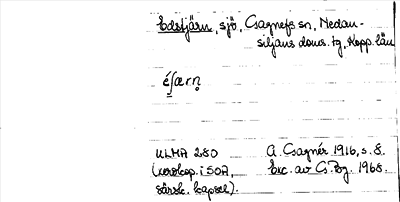 Edstjärn, sjö, Gagnefs sn, Nedan-
siljans doms. tg, Kopp. län
ULMA 280
(xerokop. i SOA,
särsk. kapsel).
A. Gagnér 1916, s. 8.
Exc. av G. Bg. 1968.